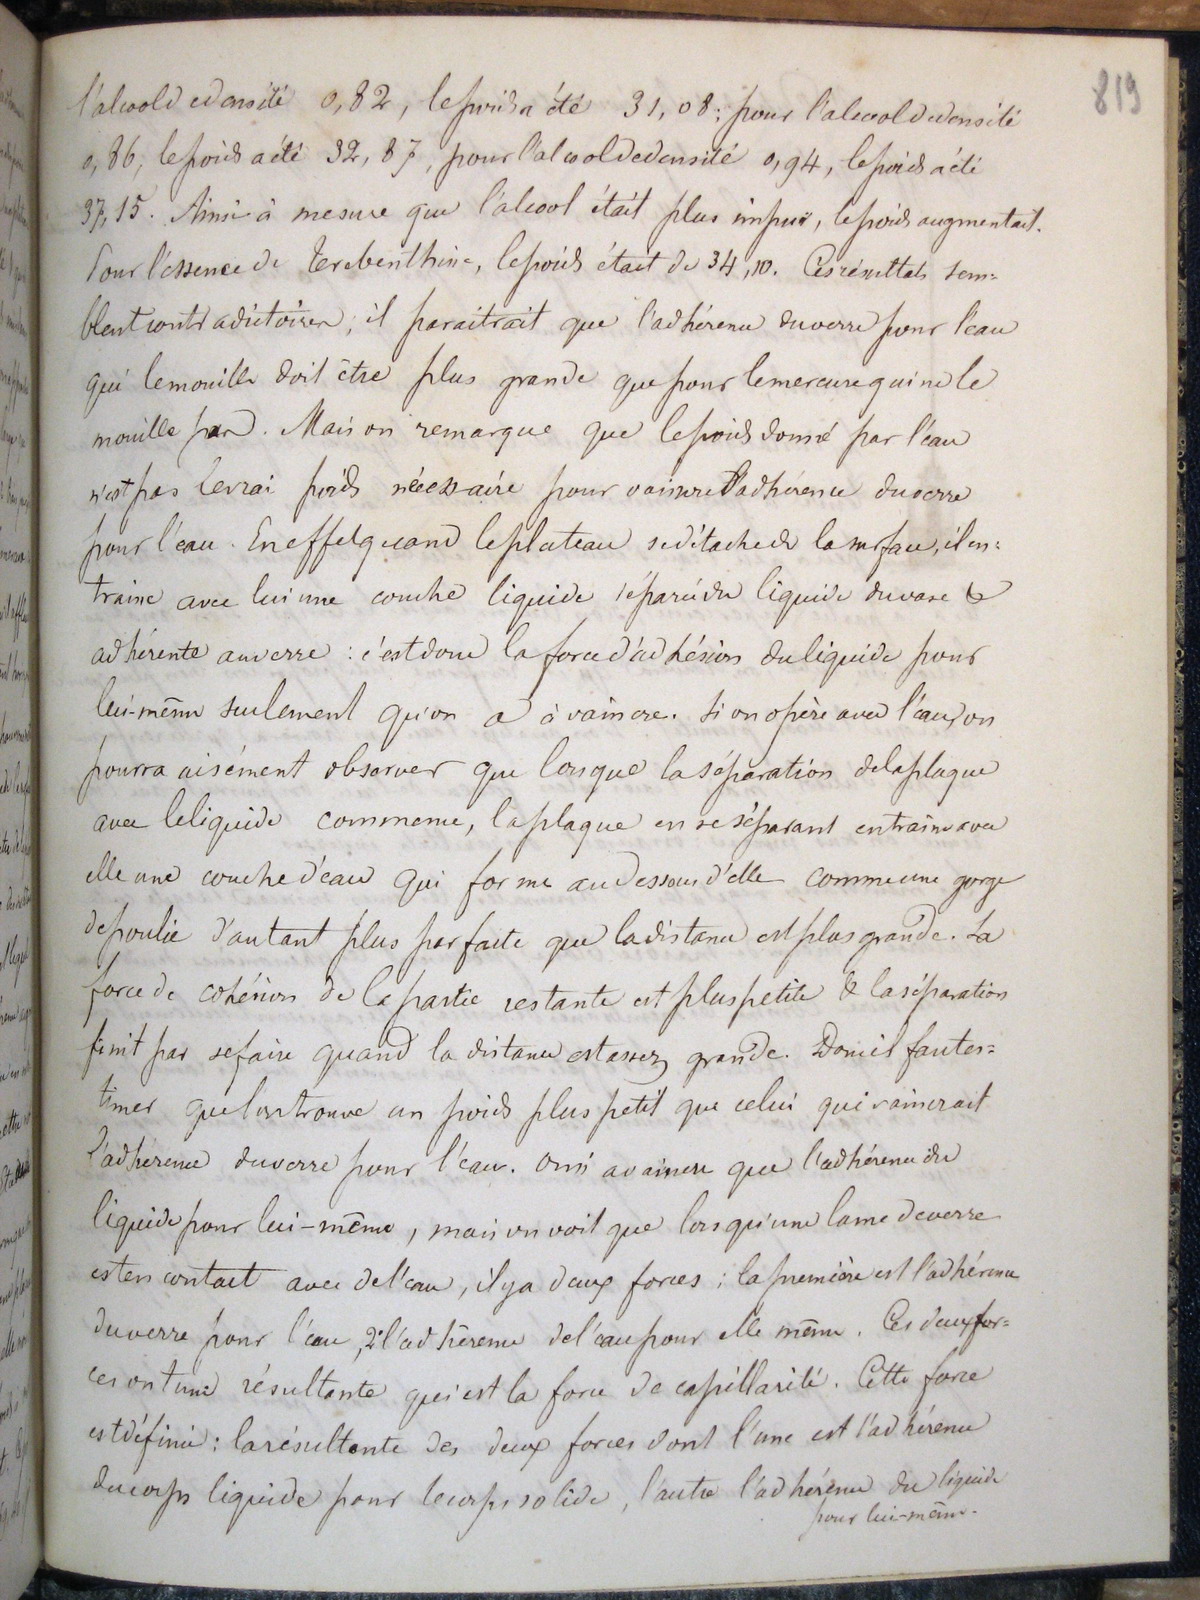 819
l'alcool de densité 0,82, le poids a été 31,08; pour l'alcool de densité
0,86, le poids a été 32,87, pour l'alcool de densité 0,94, le poids a été
37,15. Ainsi à mesure que l'alcool était plus impur, le poids augmentait.
Pour l'essence de terebenthine, le poids était de 34,10. Ces résultats sem=
blent contradictoires; il paraitrait que l'adhérence du verre pour l'eau
qui le mouille doit être plus grande que pour le mercure qui ne le
mouille pas. Mais on remarque que le poids donné par l'eau
n'est pas le vrai poids nécessaire pour vaincre l'adhérence du verre
pour l'eau. En effet quand le plateau se détache de la surface, il en=
traine avec lui une couche liquide séparée du liquide du vase &
adhérente au verre : c'est donc la force d'adhésion du liquide pour
lui-même seulement qu'on a à vaincre. Si on opère avec l'eau, on
pourra aisément observer que lorsque la séparation de la plaque
avec le liquide commence, la plaque en se séparant entraîne avec
elle une couche d'eau qui forme au dessous d'elle comme une gorge
de poulie d'autant plus parfaite que la distance est plus grande. La
force de cohésion de la partie restante est plus petite & la séparation
finit par se faire quand la distance est assez grande. Donc il faut es=
timer que l'on trouve un poids plus petit que celui qui vaincrait
l'adhérence du verre pour l'eau. On n'i a vaincu que l'adhérence du
liquide pour lui-même, mais on voit que lorsqu'une lame de verre
est en contact avec de l'eau, il y a deux forces : la première est l'adhérence
du verre pour l'eau, 2° l'adhérence de l'eau pour elle même. Ces deux for=
ces ont une résultante qui est la force de capillarité. Cette force
est définie : la résultante des deux forces dont l'une est l'adhérence
du corps liquide pour le corps solide, l'autre l'adhérence du liquide
pour lui-même.